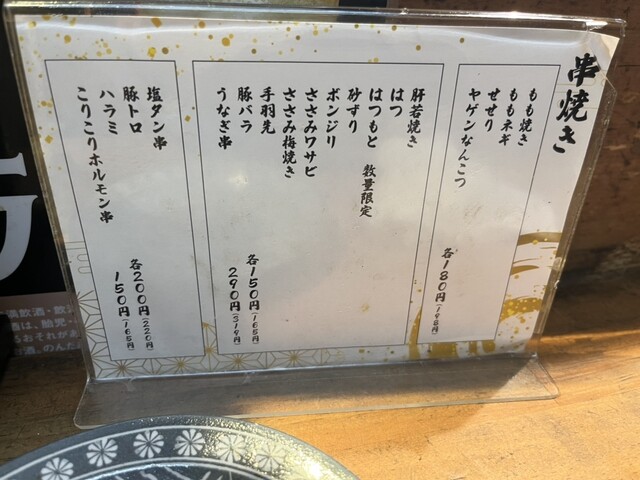 串焼き
もも焼き
ももネギ
せせり
ヤゲンなんこつ
各180円(198円)
肝若焼き
はつ
はつもと 数量限定
砂ずり
ボンジリ
ささみワサビ
ささみ梅焼き
手羽先
豚バラ
うなぎ串
各150円(165円)
290円(319円)
塩タン串
豚トロ
ハラミ
こりこりホルモン串
各200円(220円)
150円(165円)